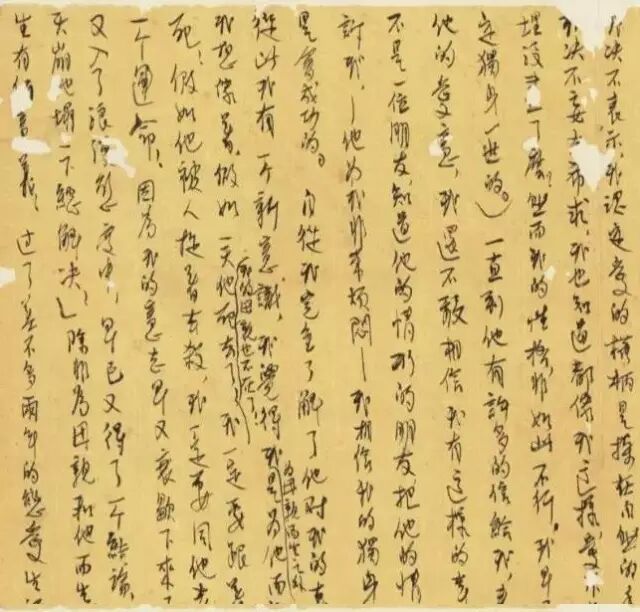 决不表示，我認定愛的權柄是操在自然的手
我决不妄去希求，我也知道都像我这樣，愛不
埋没尽了麽？然而我的性格非如此不行。我早
定獨身一世的。）一直到他有許多的信給我，表
他的愛意，我還不敢相信我有这樣的幸
不是一位朋友，知道他的情形的朋友，把他的情
訴我，—他为我非常煩悶—我相信我的獨身
是會成功的。自從我完全了解了他对我的真
從此我有一个新意識，我覺得我为母親而生之外是为他而
我想像着，假如一天他死去了，我的母親也不在了！我一定要跟着
死！假如他被人捉着去殺，我一定要同他去
一个運命！因为我的意志早又衰歇下來了
又入了浪漫態度中，早已又得了一个結論
天崩地塌一下總解决！」除非为母親和他而生
生有何意義！过了差不多兩年的戀愛生